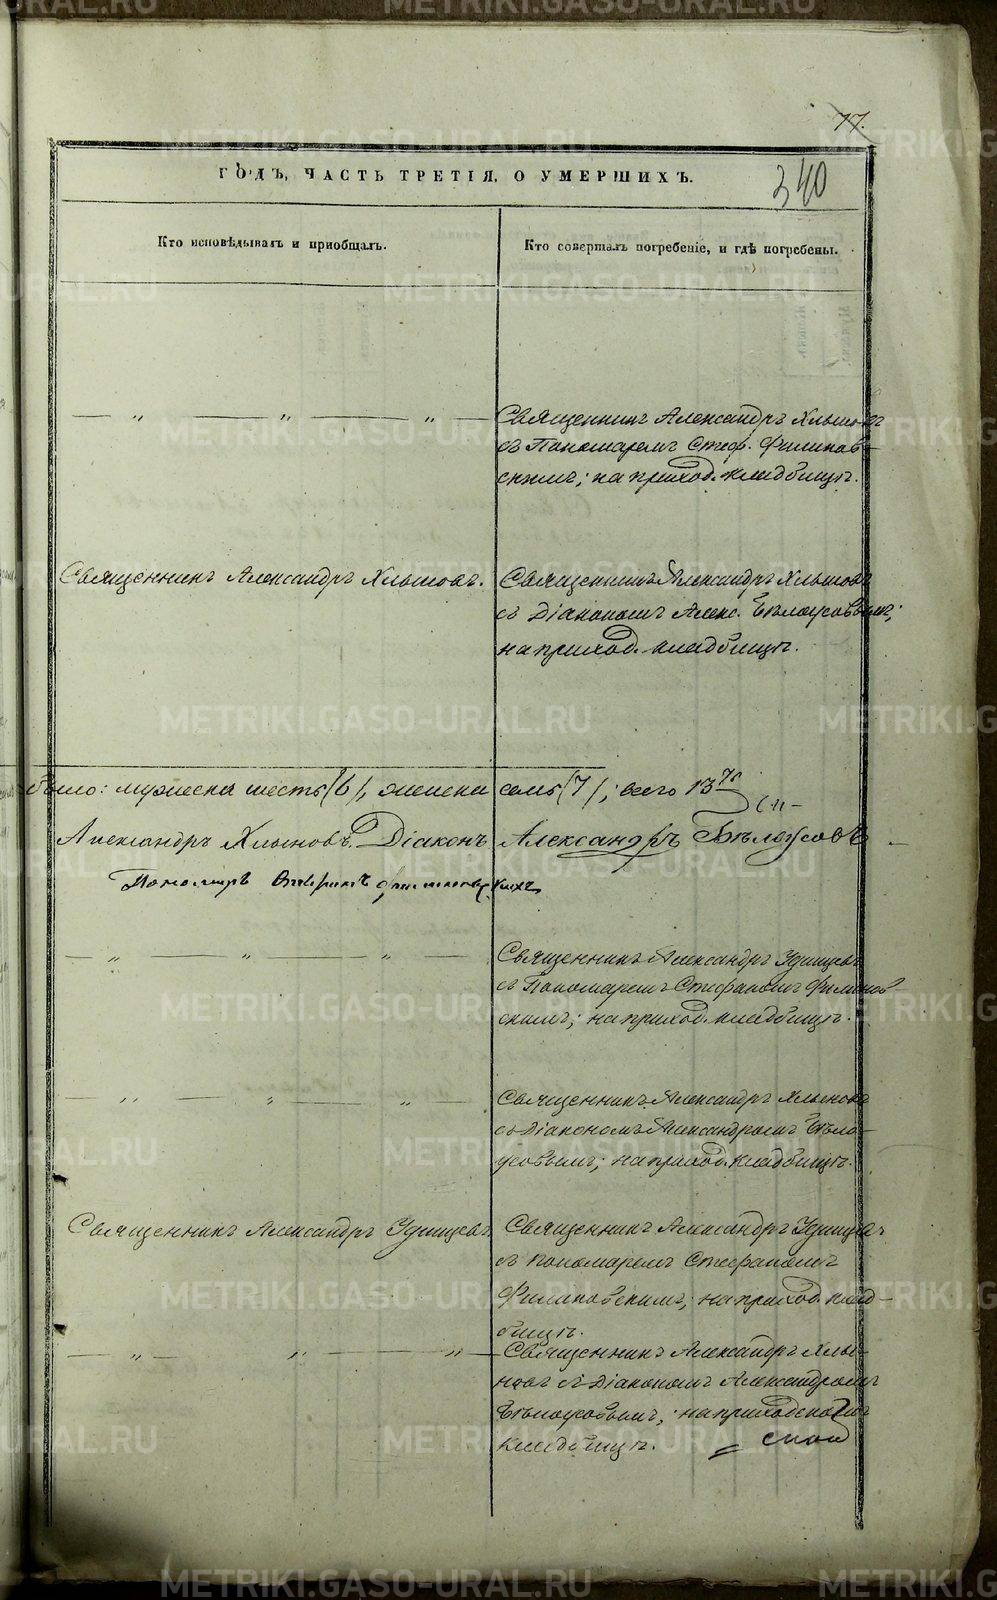 77.
340
ГОДЪ, ЧАСТЬ ТРЕТІЯ, О УМЕРШИХЪ.
Кто исповѣдывалъ и пріобщалъ.
Кто совершалъ погребеніе, и гдѣ погребены.
— „ — „ — „ —
Священникъ Александръ Хлыновъ
съ Пономаремъ Стеф. Филинов-
скимъ; на приход. кладбищѣ.
Священникъ Александръ Хлыновъ.
Священникъ Александръ Хлыновъ
съ Діакономъ Алекс. Бѣлоусовымъ;
на приход. кладбищѣ.
было: мужеска шесть (6), женска семь (7); всего 13
Александръ Хлыновъ. Діаконъ Александръ Бѣлоусовъ
Пономарь
— „ — „ — „ —
Священникъ Александръ Удинцевъ
съ Пономаремъ Стефаномъ Филинов
скимъ; на приход. кладбищѣ.
— „ — „ — „ —
Священникъ Александръ Хлыновъ
съ Діакономъ Александромъ Бѣло-
усовымъ; на приход. кладбищѣ.
Священникъ Александръ Удинцевъ.
Священникъ Александръ Удинцевъ
съ пономаремъ Стефаномъ
Филиновскимъ; на приход. клад-
бищѣ.
— „ — „ — „ —
Священникъ Александръ Хлы-
новъ съ Діакономъ Александромъ
Бѣлоусовымъ; на приходскомъ
кладбищѣ.
METRIKI.GASO-URAL.RU